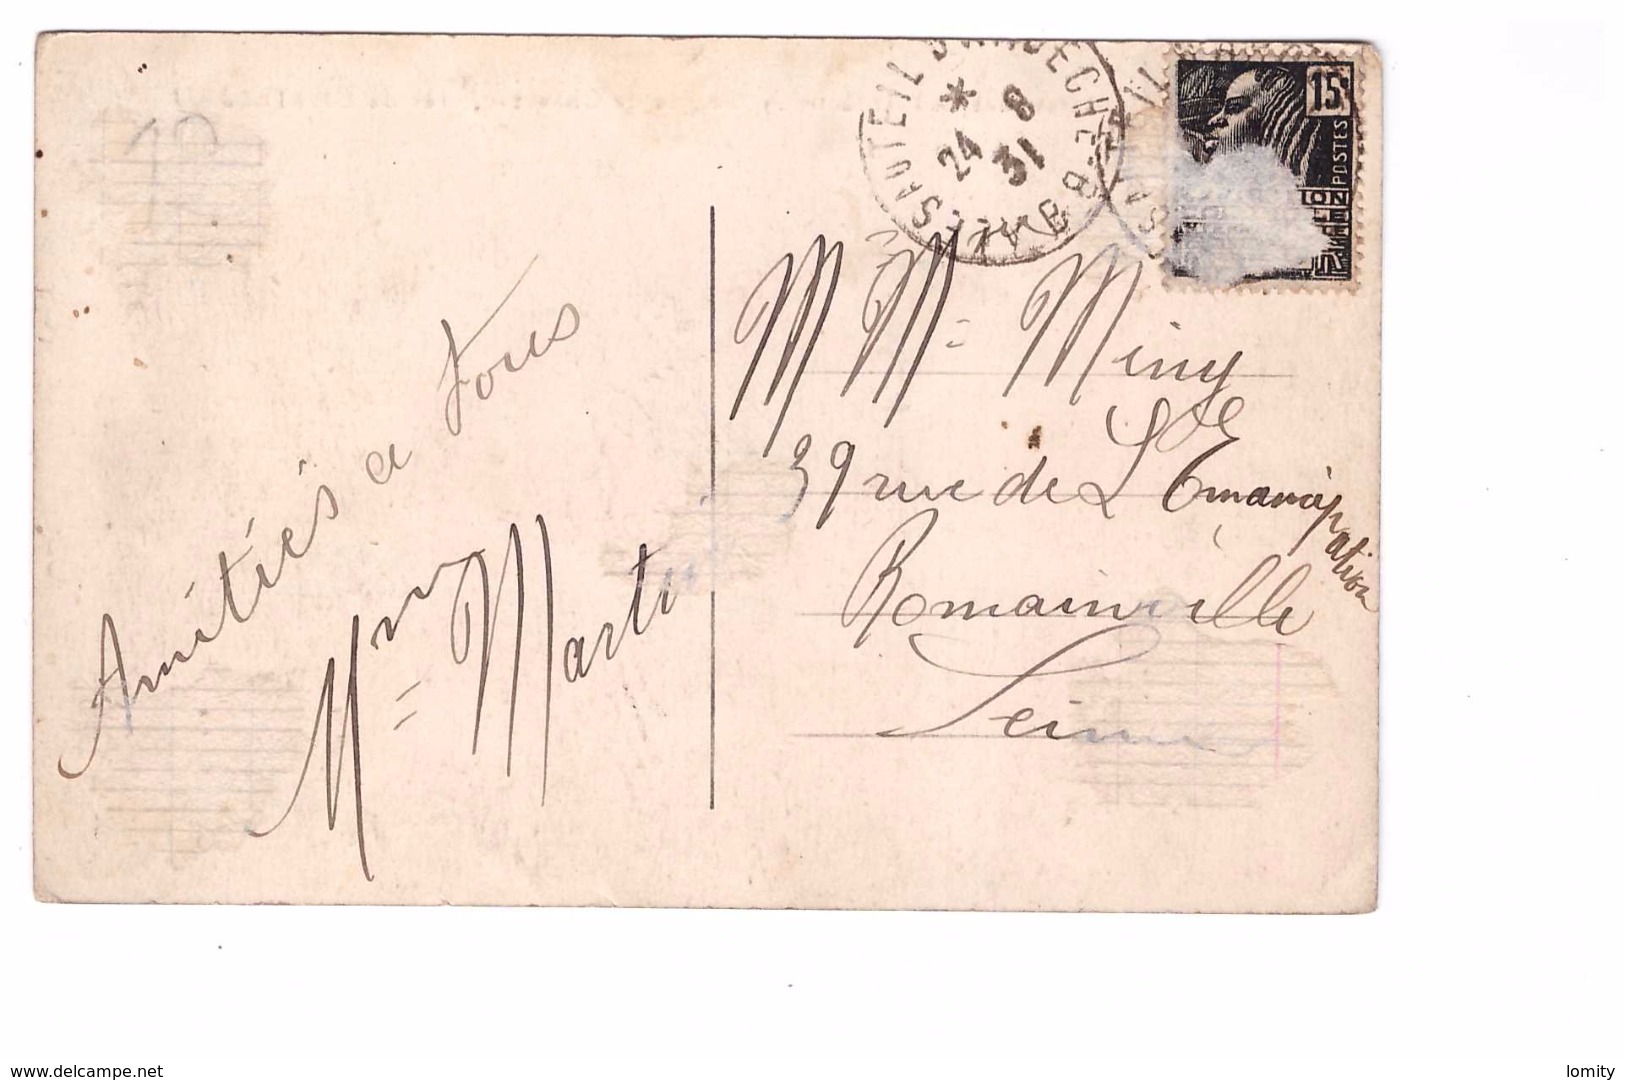 Amitiés a tous
Mme Martin
SAUTEIL D'ARDECHE
*
24 8
31
15c
POSTES
Mr Me Miny
39 rue de L'Emancipation
Romainville
Seine
www.delcampe.net
lomity